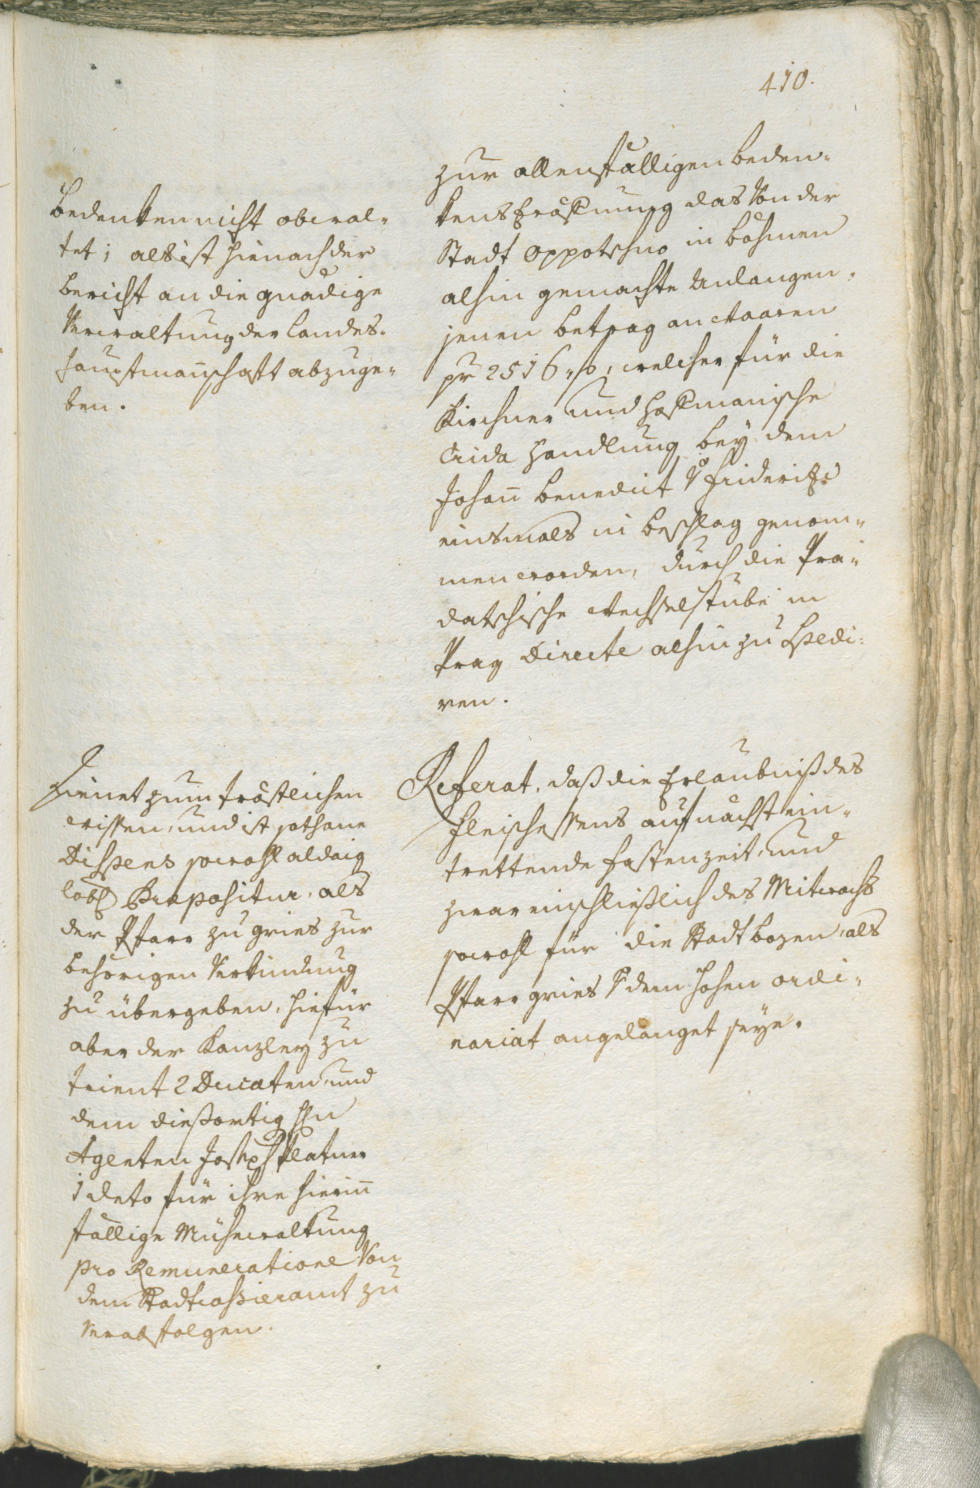 410.
Bedenken nicht obwal-
tet; als ist hienach der
Bericht an die gnädige
Verwaltung der Landes-
hauptmannschaft abzuge-
ben.
zur allenfälligen Beden-
kens Eröffnung das Von der
Stadt Oppotschno in Böhmen
alhin gemachte Anlangen,
jenen Betrag an Baaren
pr 2516 f, welcher für die
Kirchner und Hoffmanische
Crida Handlung bey dem
Johann Benedict V Friderich
einsmals in Beschlag genom-
men worden, durch die Pra-
datschische Wechselstube in
Prag Directe alhin zu Spedi-
ren.
Dienet zum tröstlichen
wissen, und ist sothane
Dispens sowohl aldaig
löbl Præpositur, als
der Pfarr zu Gries zur
behörigen Verkündung
zu übergeben, hiefür
aber der Kanzley zu
Trient 2 Ducaten und
dem diesortig Hn
Agenten Joseph Platner
1 deto für ihre hierinn
fällige Mühewaltung
pro Remuneratione Von
dem Stadtcassieramt zu
Verabfolgen.
Referat, daß die Erlaubniß des
Fleischessens auf nächst ein-
trettende Fastenzeit, und
zwar einschließlich des Mitwochs
sowohl für die Stadt Bozen, als
Pfarr Gries V dem Hohen Ordi-
nariat angelanget seye.